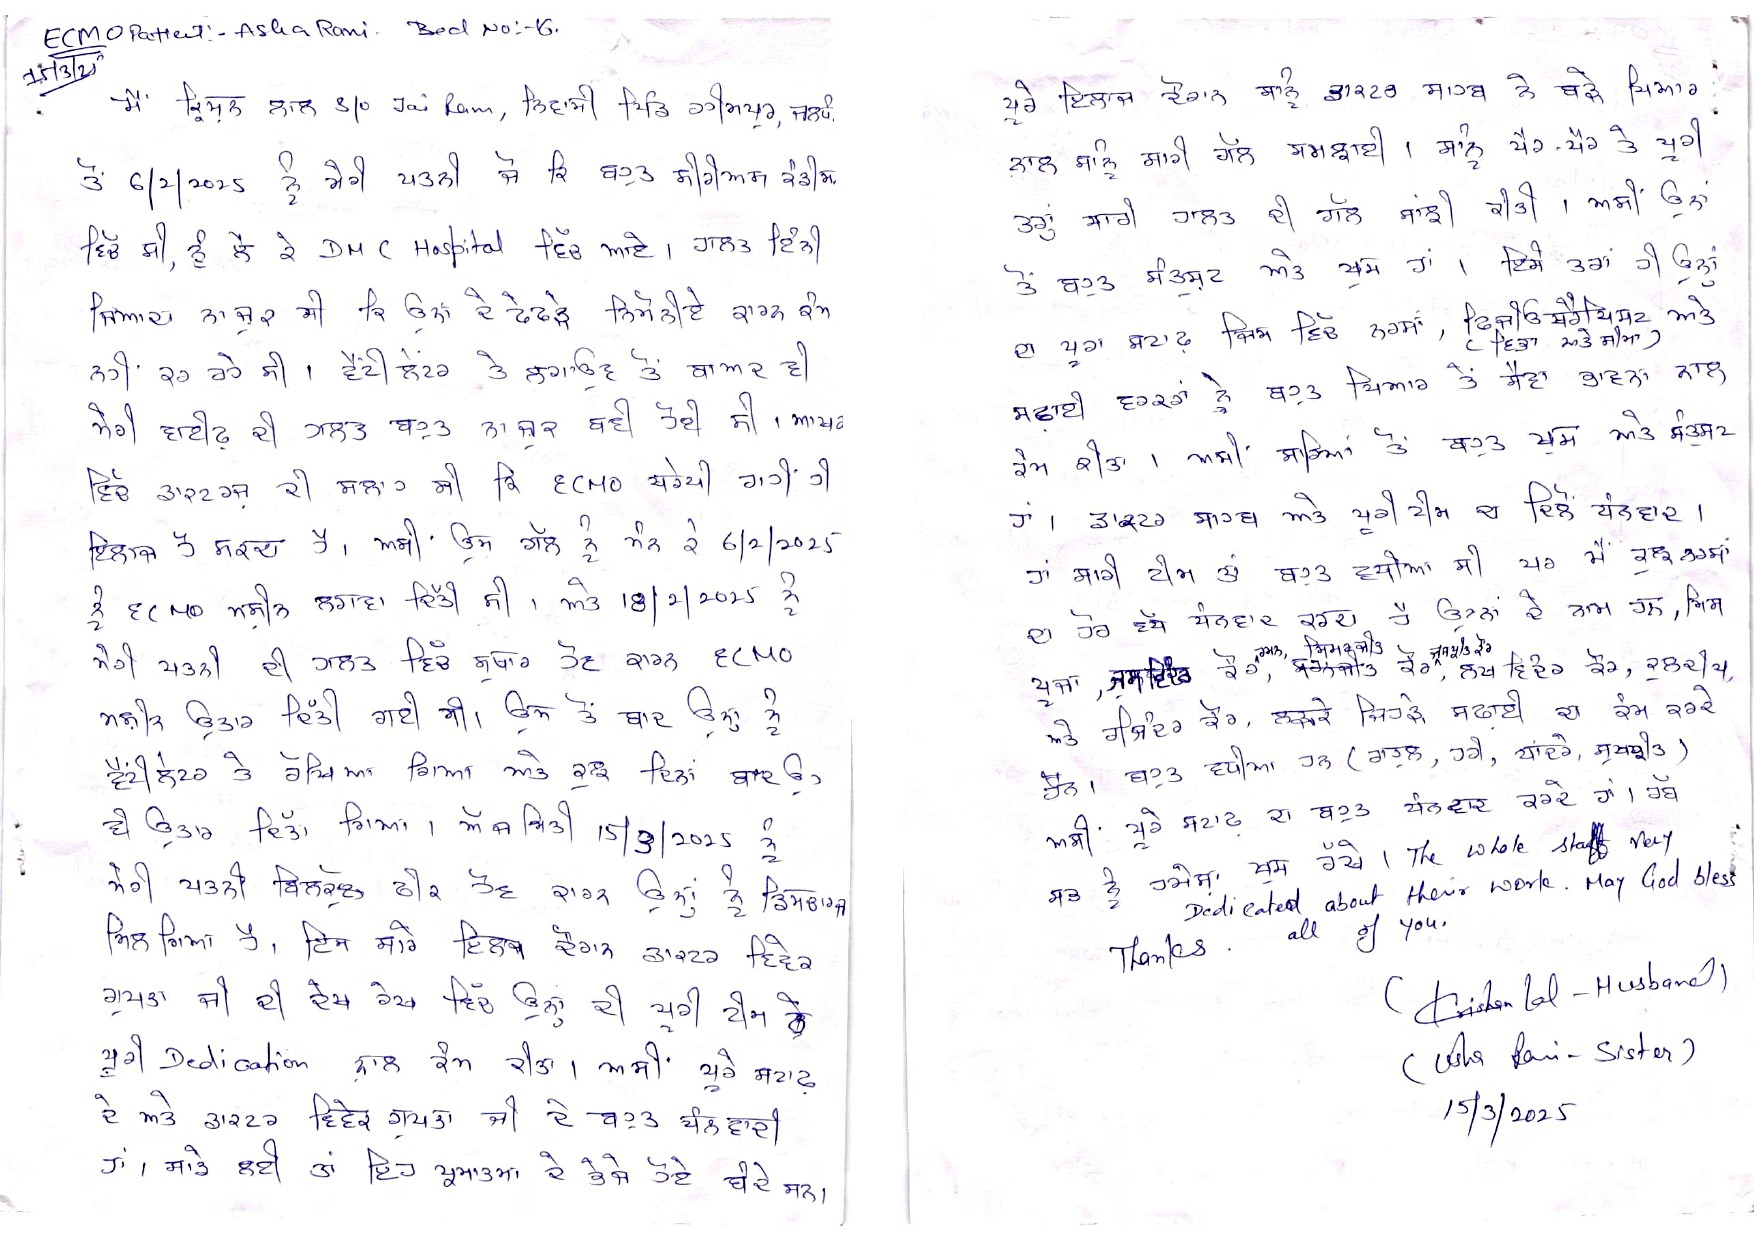 ECMO Patient:- Asha Rani. Bed No:-6.
15/3/25
ਮੈਂ ਕ੍ਰਿਸ਼ਨ ਲਾਲ S/o Jai Ram, ਨਿਵਾਸੀ ਪਿੰਡ ਰਹੀਮਪੁਰ, ਜਲੰਧਰ
ਤੋਂ 6/2/2025 ਨੂੰ ਮੇਰੀ ਪਤਨੀ ਜੋ ਕਿ ਬਹੁਤ ਸੀਰੀਅਸ ਕੰਡੀਸ਼ਨ
ਵਿੱਚ ਸੀ, ਨੂੰ ਲੈ ਕੇ DMC Hospital ਵਿੱਚ ਆਏ। ਹਾਲਤ ਇੰਨੀ
ਜਿਆਦਾ ਨਾਜ਼ੁਕ ਸੀ ਕਿ ਉਨਾਂ ਦੇ ਫੇਫੜੇ ਨਿਮੋਨੀਏ ਕਾਰਨ ਕੰਮ
ਨਹੀਂ ਕਰ ਰਹੇ ਸੀ। ਵੈਂਟੀਲੇਟਰ ਤੇ ਲਗਾਉਣ ਤੋਂ ਬਾਅਦ ਵੀ
ਮੇਰੀ ਵਾਈਫ਼ ਦੀ ਹਾਲਤ ਬਹੁਤ ਨਾਜ਼ੁਕ ਬਣੀ ਹੋਈ ਸੀ। ਆਖਰ
ਵਿੱਚ ਡਾਕਟਰਜ਼ ਦੀ ਸਲਾਹ ਸੀ ਕਿ ECMO ਥਰੇਪੀ ਰਾਹੀਂ ਹੀ
ਇਲਾਜ ਹੋ ਸਕਦਾ ਹੈ। ਅਸੀਂ ਉਸ ਗੱਲ ਨੂੰ ਮੰਨ ਕੇ 6/2/2025
ਨੂੰ ECMO ਮਸ਼ੀਨ ਲਗਵਾ ਦਿੱਤੀ ਸੀ। ਅਤੇ 18/2/2025 ਨੂੰ
ਮੇਰੀ ਪਤਨੀ ਦੀ ਹਾਲਤ ਵਿੱਚ ਸੁਧਾਰ ਹੋਣ ਕਾਰਨ ECMO
ਮਸ਼ੀਨ ਉਤਾਰ ਦਿੱਤੀ ਗਈ ਸੀ। ਉਸ ਤੋਂ ਬਾਦ ਉਨ੍ਹਾਂ ਨੂੰ
ਵੈਂਟੀਲੇਟਰ ਤੇ ਰੱਖਿਆ ਗਿਆ ਅਤੇ ਕੁਝ ਦਿਨਾਂ ਬਾਦ ਉਹ
ਵੀ ਉਤਾਰ ਦਿੱਤਾ ਗਿਆ। ਅੱਜ ਮਿਤੀ 15/3/2025 ਨੂੰ
ਮੇਰੀ ਪਤਨੀ ਬਿਲਕੁੱਲ ਠੀਕ ਹੋਣ ਕਾਰਨ ਉਨ੍ਹਾਂ ਨੂੰ ਡਿਸਚਾਰਜ
ਮਿਲ ਗਿਆ ਹੈ, ਇਸ ਸਾਰੇ ਇਲਾਜ ਦੌਰਾਨ ਡਾਕਟਰ ਵਿਵੇਕ
ਗੁਪਤਾ ਜੀ ਦੀ ਦੇਖ ਰੇਖ ਵਿੱਚ ਉਨ੍ਹਾਂ ਦੀ ਪੂਰੀ ਟੀਮ ਨੇ
ਪੂਰੀ Dedication ਨਾਲ ਕੰਮ ਕੀਤਾ। ਅਸੀਂ ਪੂਰੇ ਸਟਾਫ਼
ਦੇ ਅਤੇ ਡਾਕਟਰ ਵਿਵੇਕ ਗੁਪਤਾ ਜੀ ਦੇ ਬਹੁਤ ਧੰਨਵਾਦੀ
ਹਾਂ। ਸਾਡੇ ਲਈ ਤਾਂ ਇਹ ਪ੍ਰਮਾਤਮਾ ਦੇ ਭੇਜੇ ਹੋਏ ਬੰਦੇ ਸਨ।
ਪੂਰੇ ਇਲਾਜ ਦੌਰਾਨ ਸਾਨੂੰ ਡਾਕਟਰ ਸਾਹਬ ਨੇ ਬੜੇ ਪਿਆਰ
ਨਾਲ ਸਾਨੂੰ ਸਾਰੀ ਗੱਲ ਸਮਝਾਈ। ਸਾਨੂੰ ਪੈਰ-ਪੈਰ ਤੇ ਪੂਰੀ
ਤਰ੍ਹਾਂ ਸਾਰੀ ਹਾਲਤ ਦੀ ਗੱਲ ਸਾਂਝੀ ਕੀਤੀ। ਅਸੀਂ ਉਨਾਂ
ਤੋਂ ਬਹੁਤ ਸੰਤੁਸ਼ਟ ਅਤੇ ਖੁਸ਼ ਹਾਂ। ਇਸੇ ਤਰਾਂ ਹੀ ਉਨ੍ਹਾਂ
ਦਾ ਪੂਰਾ ਸਟਾਫ਼ ਜਿਸ ਵਿੱਚ ਨਰਸਾਂ, ਫਿਜ਼ੀਓਥੈਰੇਪਿਸਟ ਅਤੇ
(ਵਿਭਾ ਅਤੇ ਸੀਮਾ)
ਸਫਾਈ ਵਰਕਰਾਂ ਨੂੰ ਬਹੁਤ ਪਿਆਰ ਤੇ ਸੇਵਾ ਭਾਵਨਾ ਨਾਲ
ਕੰਮ ਕੀਤਾ। ਅਸੀਂ ਸਾਰਿਆਂ ਤੋਂ ਬਹੁਤ ਖੁਸ਼ ਅਤੇ ਸੰਤੁਸ਼ਟ
ਹਾਂ। ਡਾਕਟਰ ਸਾਹਬ ਅਤੇ ਪੂਰੀ ਟੀਮ ਦਾ ਦਿਲੋਂ ਧੰਨਵਾਦ।
ਹਾਂ ਸਾਰੀ ਟੀਮ ਤਾਂ ਬਹੁਤ ਵਧੀਆ ਸੀ ਪਰ ਮੈਂ ਕੁਝ ਨਰਸਾਂ
ਦਾ ਹੋਰ ਵੱਧ ਧੰਨਵਾਦ ਕਰਦਾ ਹੈ ਉਹਨਾਂ ਦੇ ਨਾਮ ਹਨ, ਮਿਸ
ਰਮਨ, ਸਿਮਰਜੀਤ
ਪੂਜਾ, ਕੌਰ, ਕੌਰ, ਲਖਵਿੰਦਰ ਕੌਰ, ਕੁਲਦੀਪ,
ਅਤੇ ਰਜਿੰਦਰ ਕੌਰ, ਲੜਕੇ ਜਿਹੜੇ ਸਫਾਈ ਦਾ ਕੰਮ ਕਰਦੇ
ਹੈਨ। ਬਹੁਤ ਵਧੀਆ ਹਨ (ਰਾਹੁਲ, ਹਰੀ, ਸੁਖਪ੍ਰੀਤ)
ਅਸੀਂ ਪੂਰੇ ਸਟਾਫ਼ ਦਾ ਬਹੁਤ ਧੰਨਵਾਦ ਕਰਦੇ ਹਾਂ। ਰੱਬ
ਸਭ ਨੂੰ ਹਮੇਸ਼ਾ ਖੁਸ਼ ਰੱਖੇ। The whole staff very
Dedicated about their work. May God bless
all of you.
Thanks.
(Krishan Lal - Husband)
(Usha Rani - Sister)
15/3/2025